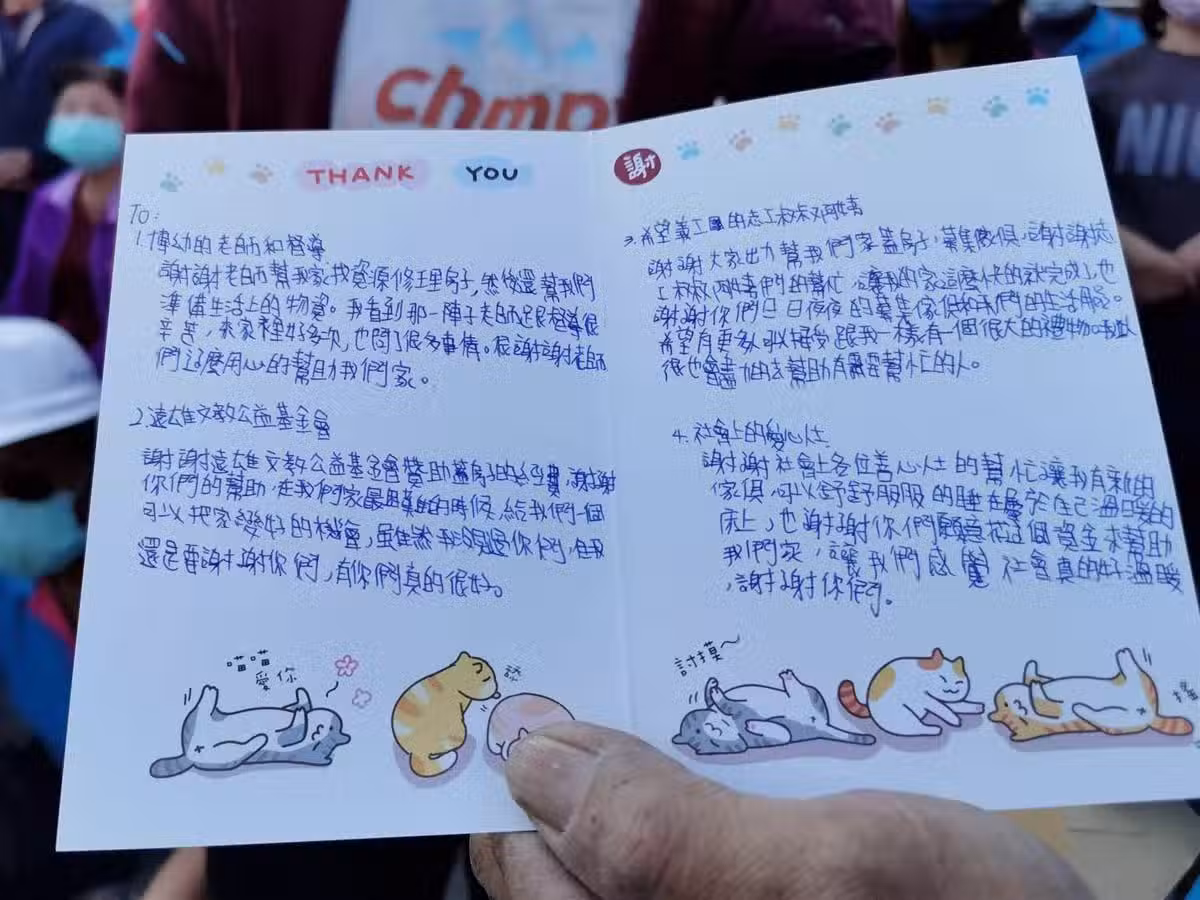 Chmp
NI
THANK YOU
TO:
1.博幼的老師和督導
謝謝老師幫我家找資源修理房子,然後還幫我們
準備生活上的物資。我看到那一陣子老師跟督導很
辛苦,來家裡好多次,也問了很多事情。很謝謝老師
們這麼用心的幫助我們家。
2.遠雄文教公益基金會
謝謝遠雄文教公益基金會贊助蓋房子的經費,謝謝
你們的幫助,在我們家最困難的時候,給我們一個
可以把家變好的機會,雖然我沒見過你們,但我
還是要謝謝你們,有你們真的很好。
喵喵
愛你
舔
謝
3.希望義工團的志工叔叔阿姨
謝謝大家出力幫我們家蓋房子,募集傢俱,謝謝志
工叔叔阿姨們的幫忙,讓我的家這麼快的就完成了,也
謝謝你們日日夜夜的募集傢俱和我們的生活用品。
希望有更多 接受跟我一樣有一個很大的禮物
也會盡 的去幫助有需要幫忙的人。
4.社會上的愛心人士
謝謝社會上各位善心人士的幫忙讓我有新的
傢俱,可以舒舒服服的睡在屬於自己溫暖的
床上,也謝謝你們願意花這個資金來幫助
我們家,讓我們感覺社會真的好溫暖
,謝謝你們。
討摸~